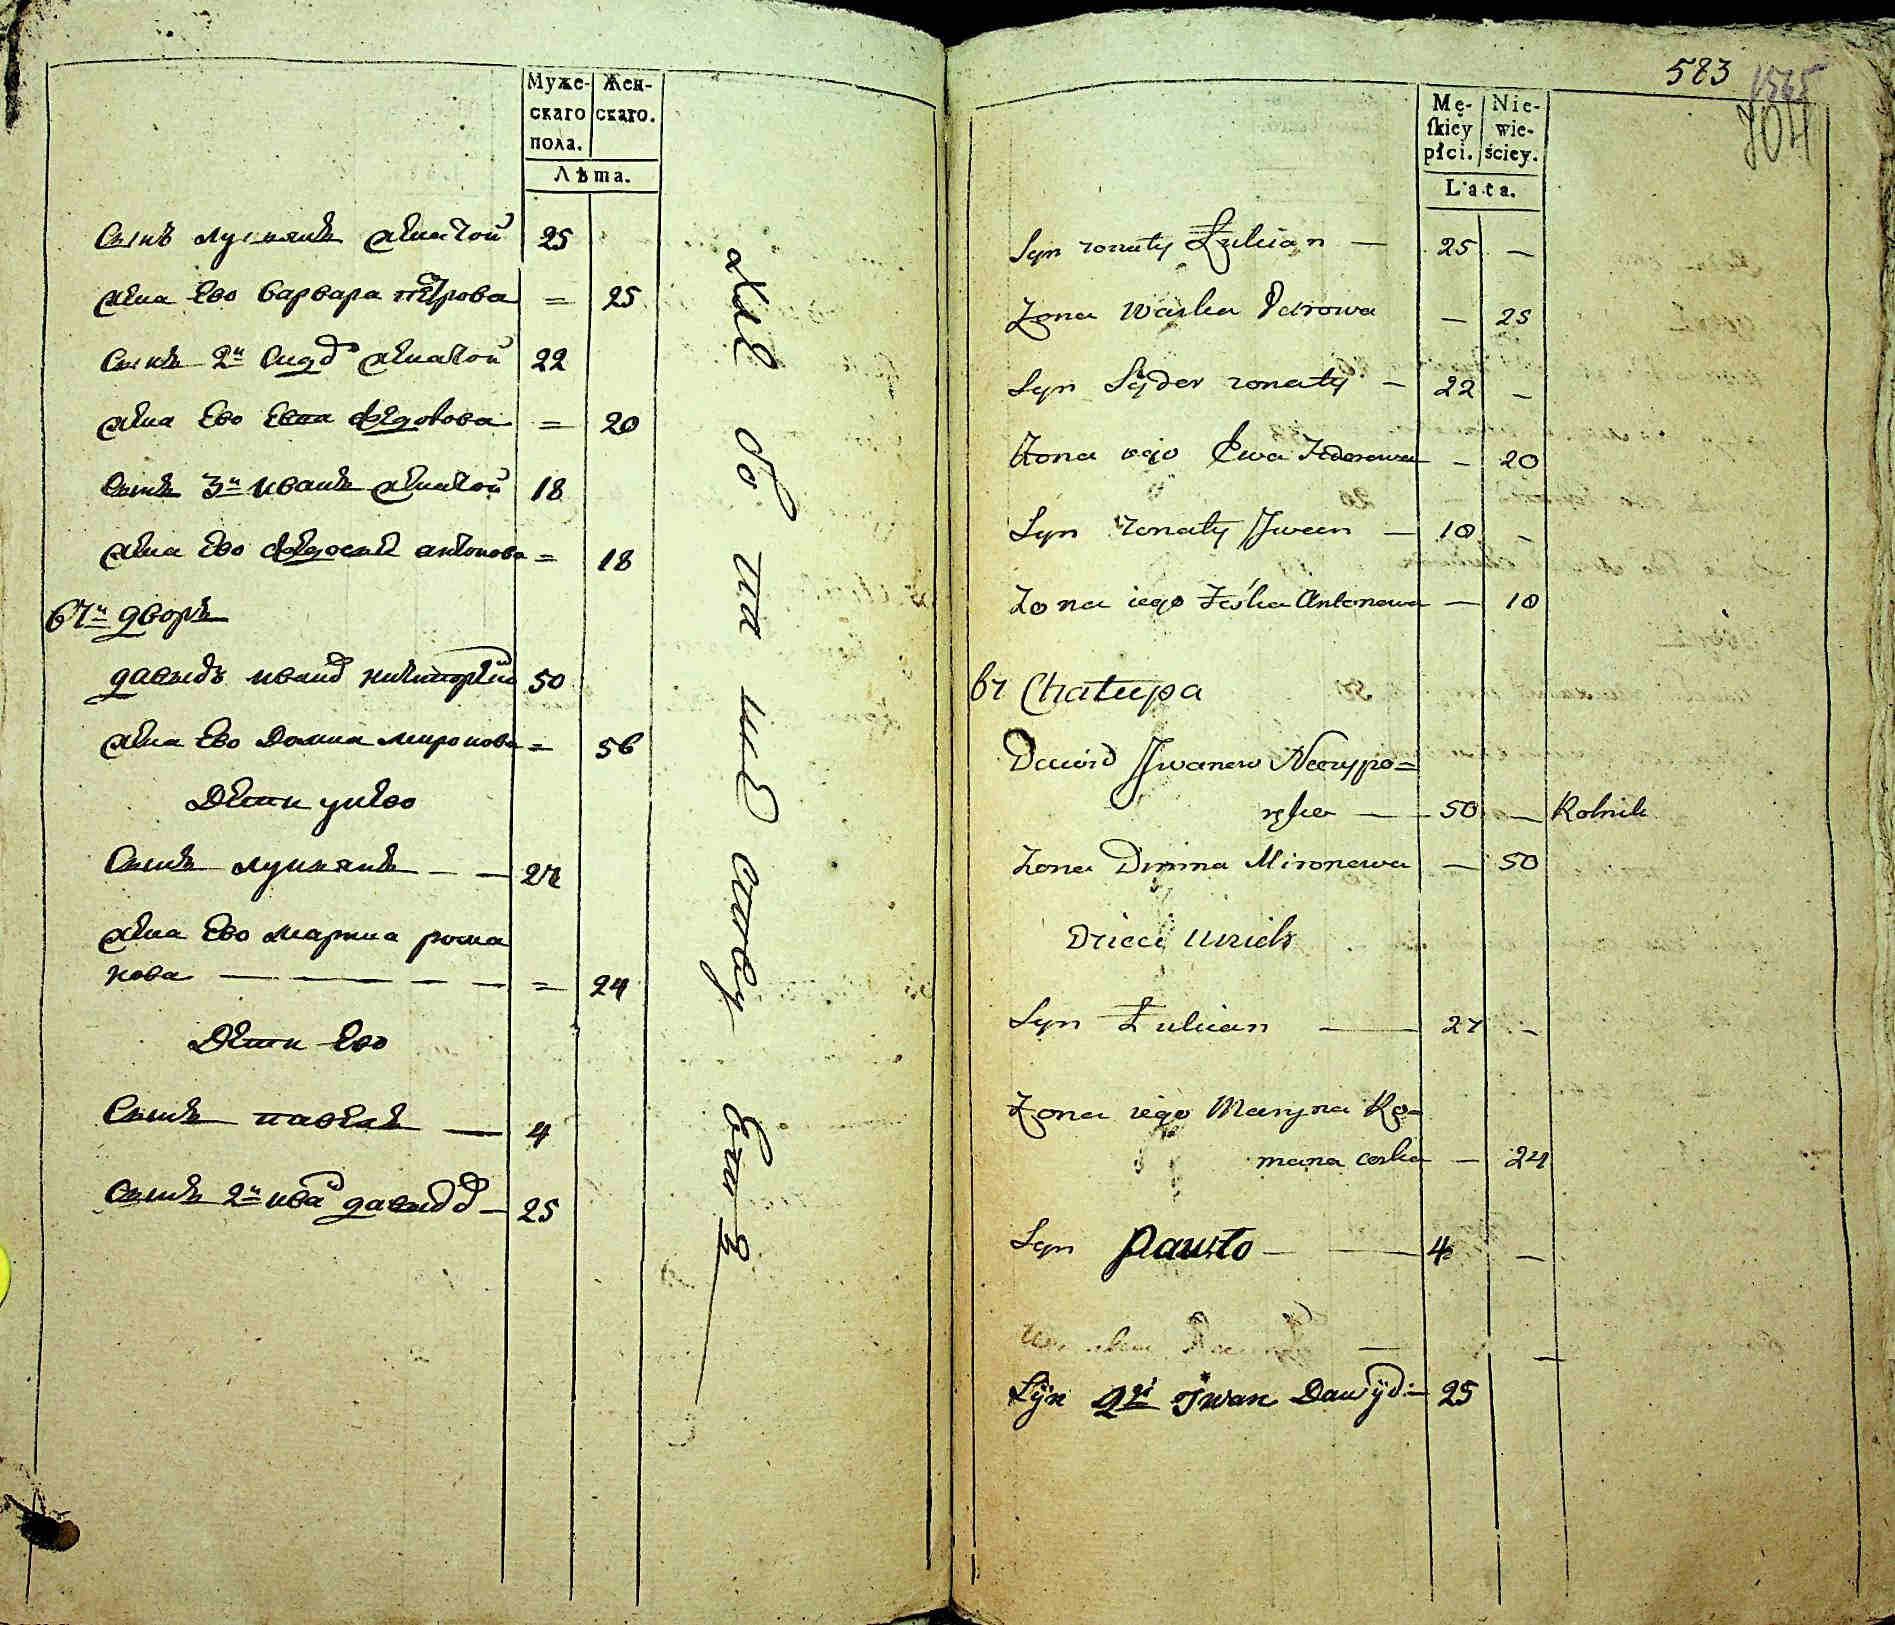 Муже-
скаго
пола.
Жен-
скаго.
Лѣта.
Сынъ лукиянъ женатой 25
жена Ево варвара петрова = 25
Сынъ 2й сидор женатой 22
жена Ево Евва федорова = 20
Сынъ 3й иванъ женатой 18
жена Ево федосия антонова = 18
67й дворъ
давыдъ иванов 50
жена Ево Домна миронова = 56
Дети унево
Сынъ лукиянъ — — 27
жена Ево марина рома
нова — — — = 24
Дети Ево
Сынъ павелъ — 4
Сынъ 2й иван давыдов — 25
583
1565
704
Mę-
skiey
płci.
Nie-
wie-
ściey.
Lata.
Syn zonaty Łukian — 25 —
Zona Warka Petrowa — 25
Syn Sydor zonaty — 22 —
Zona iego Ewa Fedorowa — 20
Syn zonaty Jwan — 18 —
Zona iego Feśka Antonowa — 18
67 Chałupa
Dawid Jwanow Neczypo=
50 — Rolnik
Zona Dmina Mironowa — 50
Dzieci Unich
Syn Łukian — 27 —
Zona iego Maryna Ro=
mana corka — 24
Syn Pawło — 4 —
Syn 2gi Jwan Dawÿd: — 25